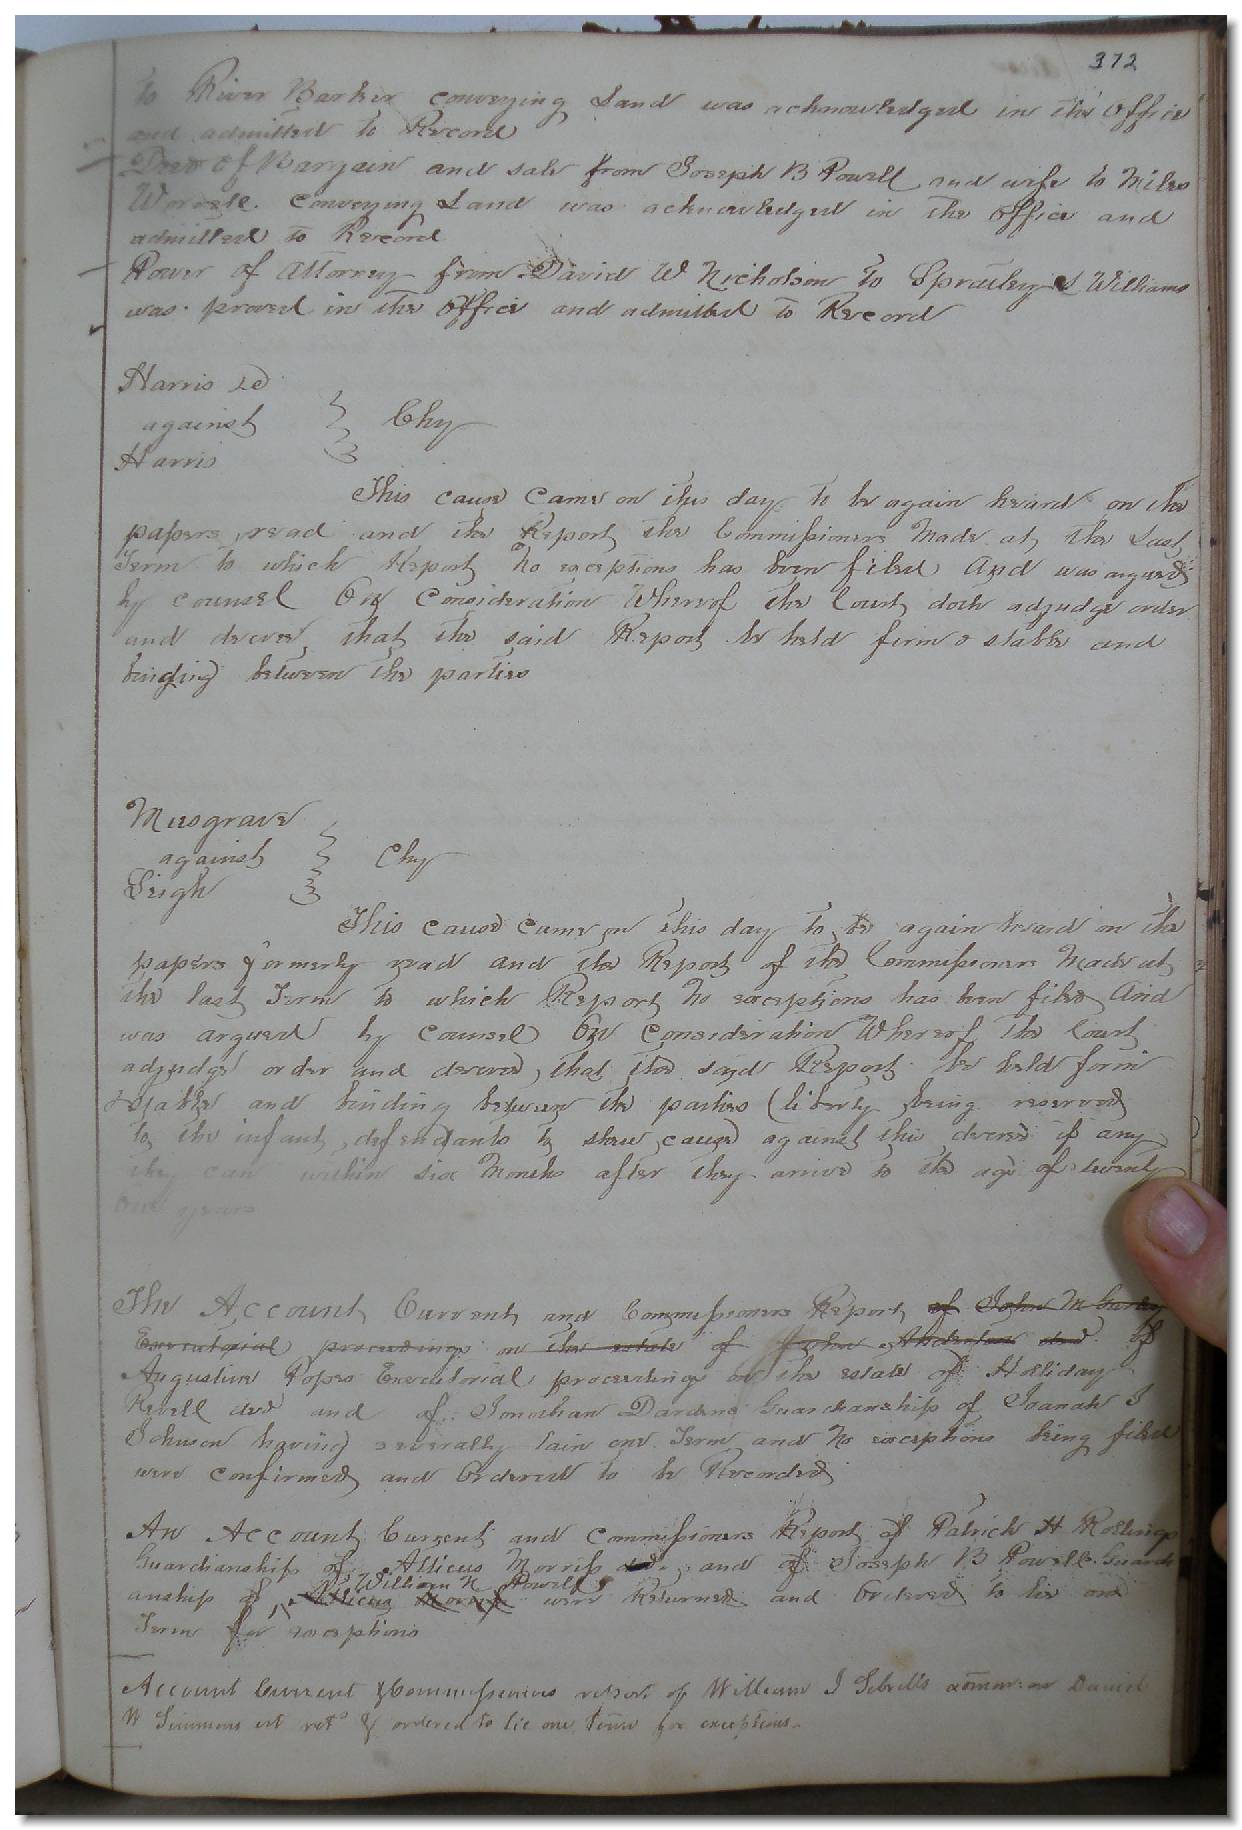 372
to River Barker conveying Land was acknowledged in the Office
and admitted to Record
Deed of Bargain and sale from Joseph B Powell and wife to Miles
Worrell. Conveying Land was acknowledged in the office and
admitted to Record
Power of Attorney from David W Nicholson to Spratley Williams
was proved in the Office and admitted to Record
Harris
against
Harris
Chy
This cause Came on this day to be again heard on the
papers read and the Report the Commissioners Made at the Last
Term to which Report No exceptions has been filed And was argued
by counsel On Consideration Whereof the Court doth adjudge order
and decree that the said Report be held firm & stable and
binding between the parties
Musgrave
against
Leigh
Chy
This cause came on this day to be again heard on the
papers formerly read and the Report of the Commissioners Made at
the last Term to which Report No exceptions has been filed And
was argued by Counsel On Consideration Whereof the Court
adjudge order and decree that the said Report be held firm
& stable and binding between the parties (liberty being reserved
to the infant defendants to shew cause against this decree if any
they can within six Months after they arrive to the age of twenty
One years
The Account Current and Commissioners Report of John M Gurley
Executorial proceedings on the estate of John Anderson decd. of
Augustine Popes Executorial proceedings on the estate of Holliday
Revell decd and of Jonathan Dardens Guardianship of Joanah J
Johnson having severally lain one Term and No exceptions being filed
were confirmed and Ordered to be Recorded
An Account Current and Commissioners Report of Patrick H Rollings
Guardianship of Atticus Morriss and of Joseph B Powells Guardi
William N Powell
anship of Atticus Morriss were Returned and Ordered to lie one
Term for exceptions
Account Current & Commissioners report of William J Sebrells admon: on Daniel
W Simmons est retd & ordered to lie one term for exceptions.